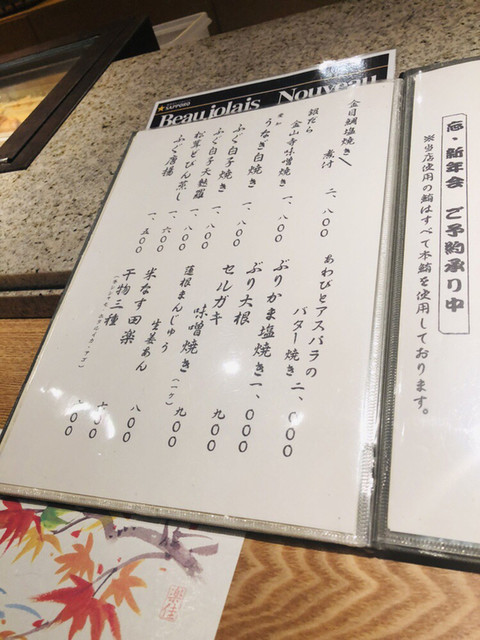 SAPPORO
Beaujolais Nouveau
忘・新年会 ご予約承り中
※当店使用の鮪はすべて本鮪を使用しております。
金目鯛塩焼き
煮付
二、八〇〇
銀だら
金山寺味噌焼き
一、八〇〇
うなぎ白焼き
一、八〇〇
ふぐ白子焼き
一、八〇〇
ふぐ白子天麩羅
一、八〇〇
松茸どびん蒸し
一、六〇〇
ふぐ唐揚
一、五〇〇
あわびとアスパラの
バター焼き
二、〇〇〇
ぶりかま塩焼き
一、〇〇〇
ぶり大根
九〇〇
セルガキ
味噌焼き(一ケ)
九〇〇
蓮根まんじゅう
生姜あん
八〇〇
米なす田楽
干物三種